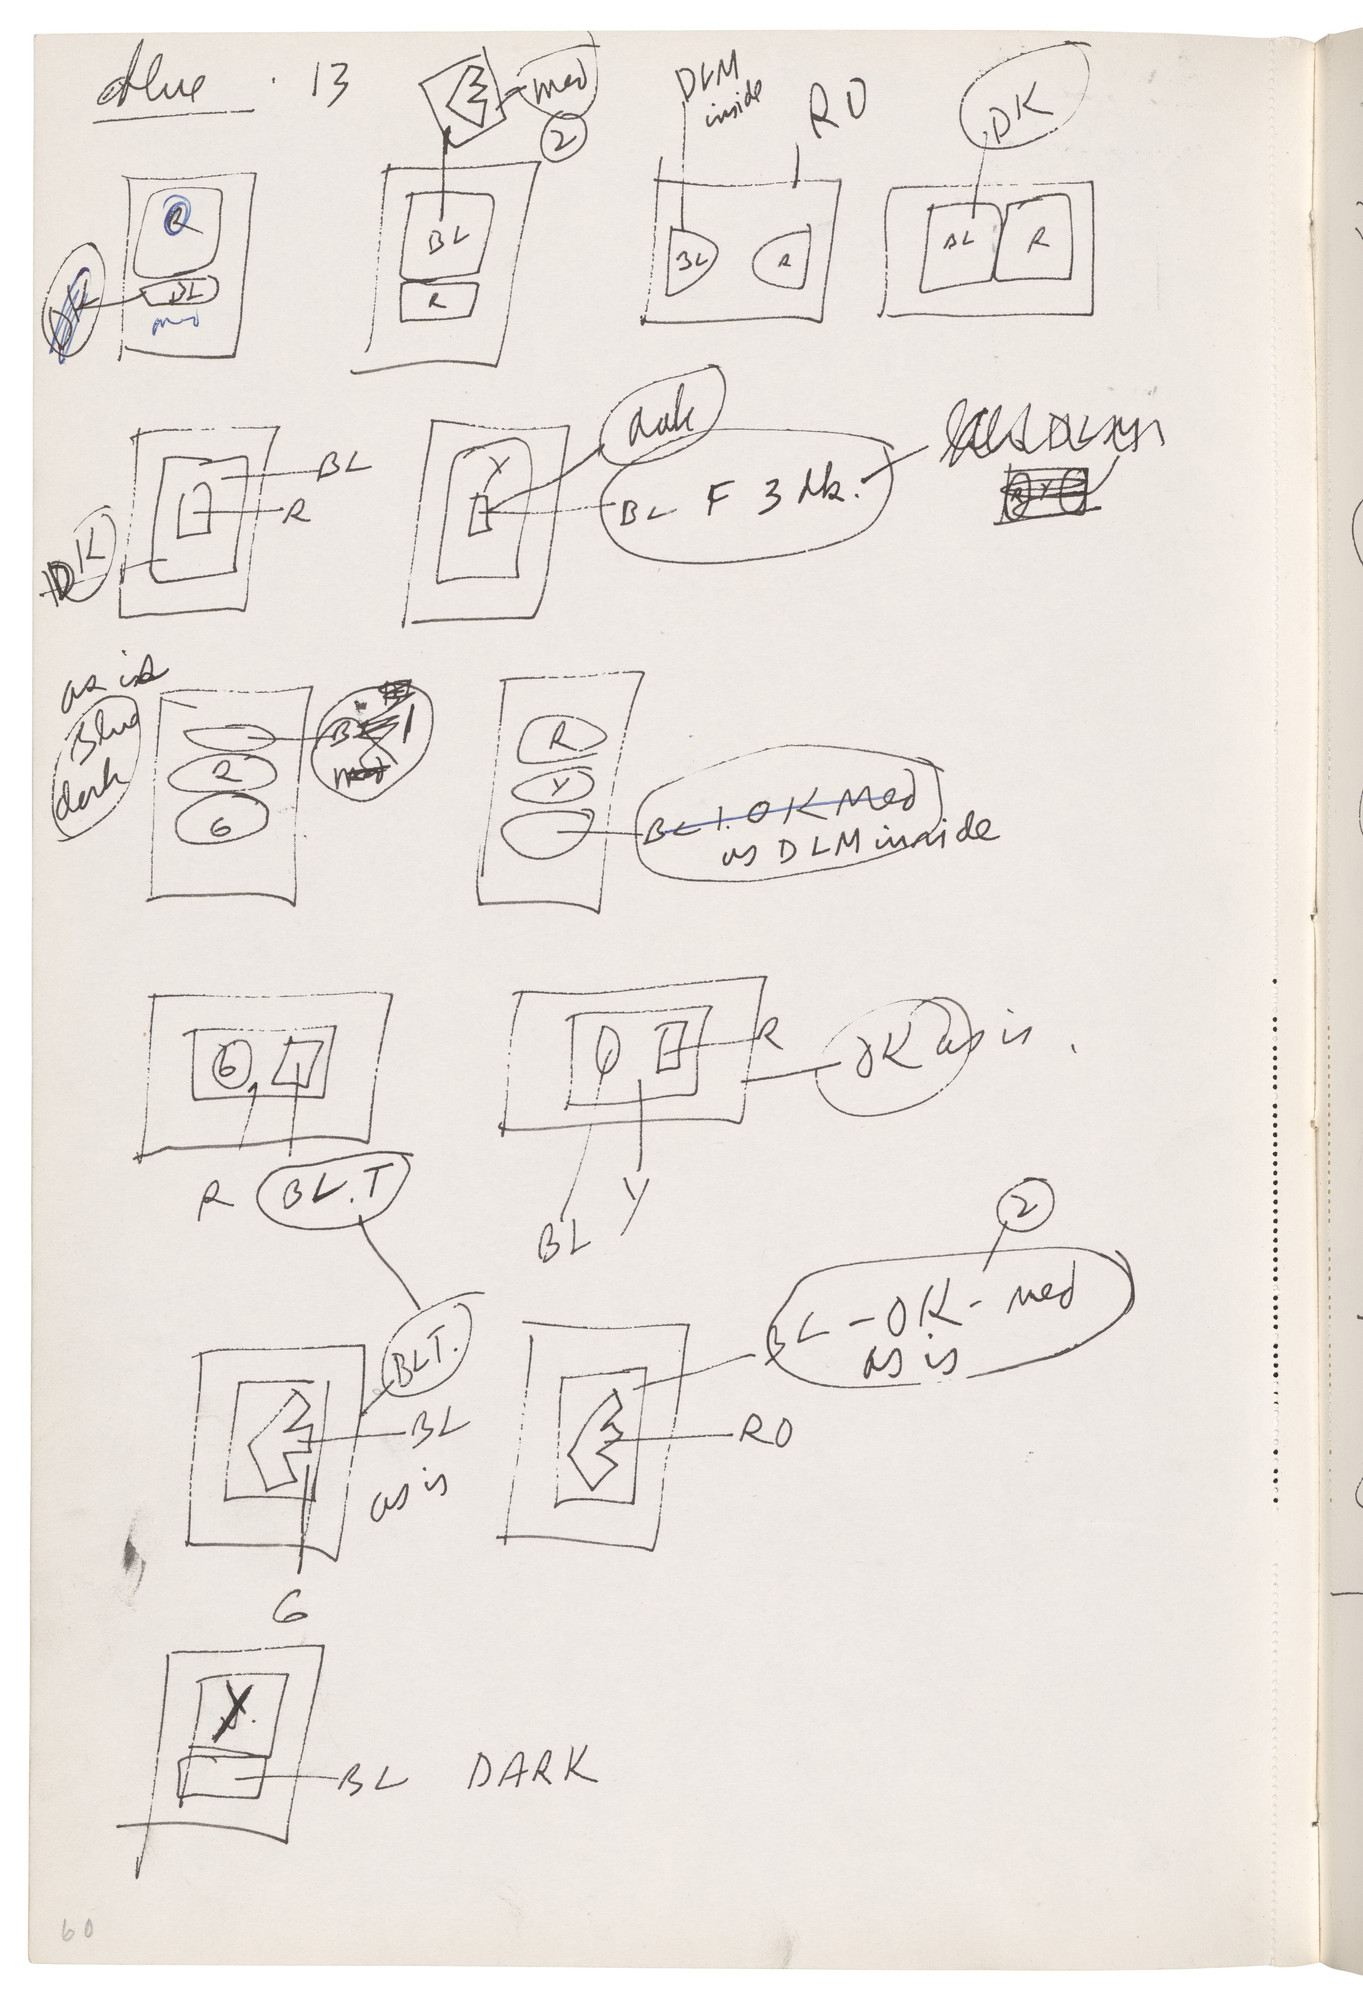 Blue . 13
med
2
DLM
inside
RO
DK
R
BL
med
DK
BL
R
BL
R
BL
R
BL
R
DK
Y
dark
BL F 3 dk.
as is
Blue
dark
BL
R
G
R
Y
BL 1. OK Med
as DLM inside
G
R
BL.T
R
OK as is.
BL
Y
2
BL.T.
BL
as is
G
BL - OK - med
as is
RO
BL DARK
60